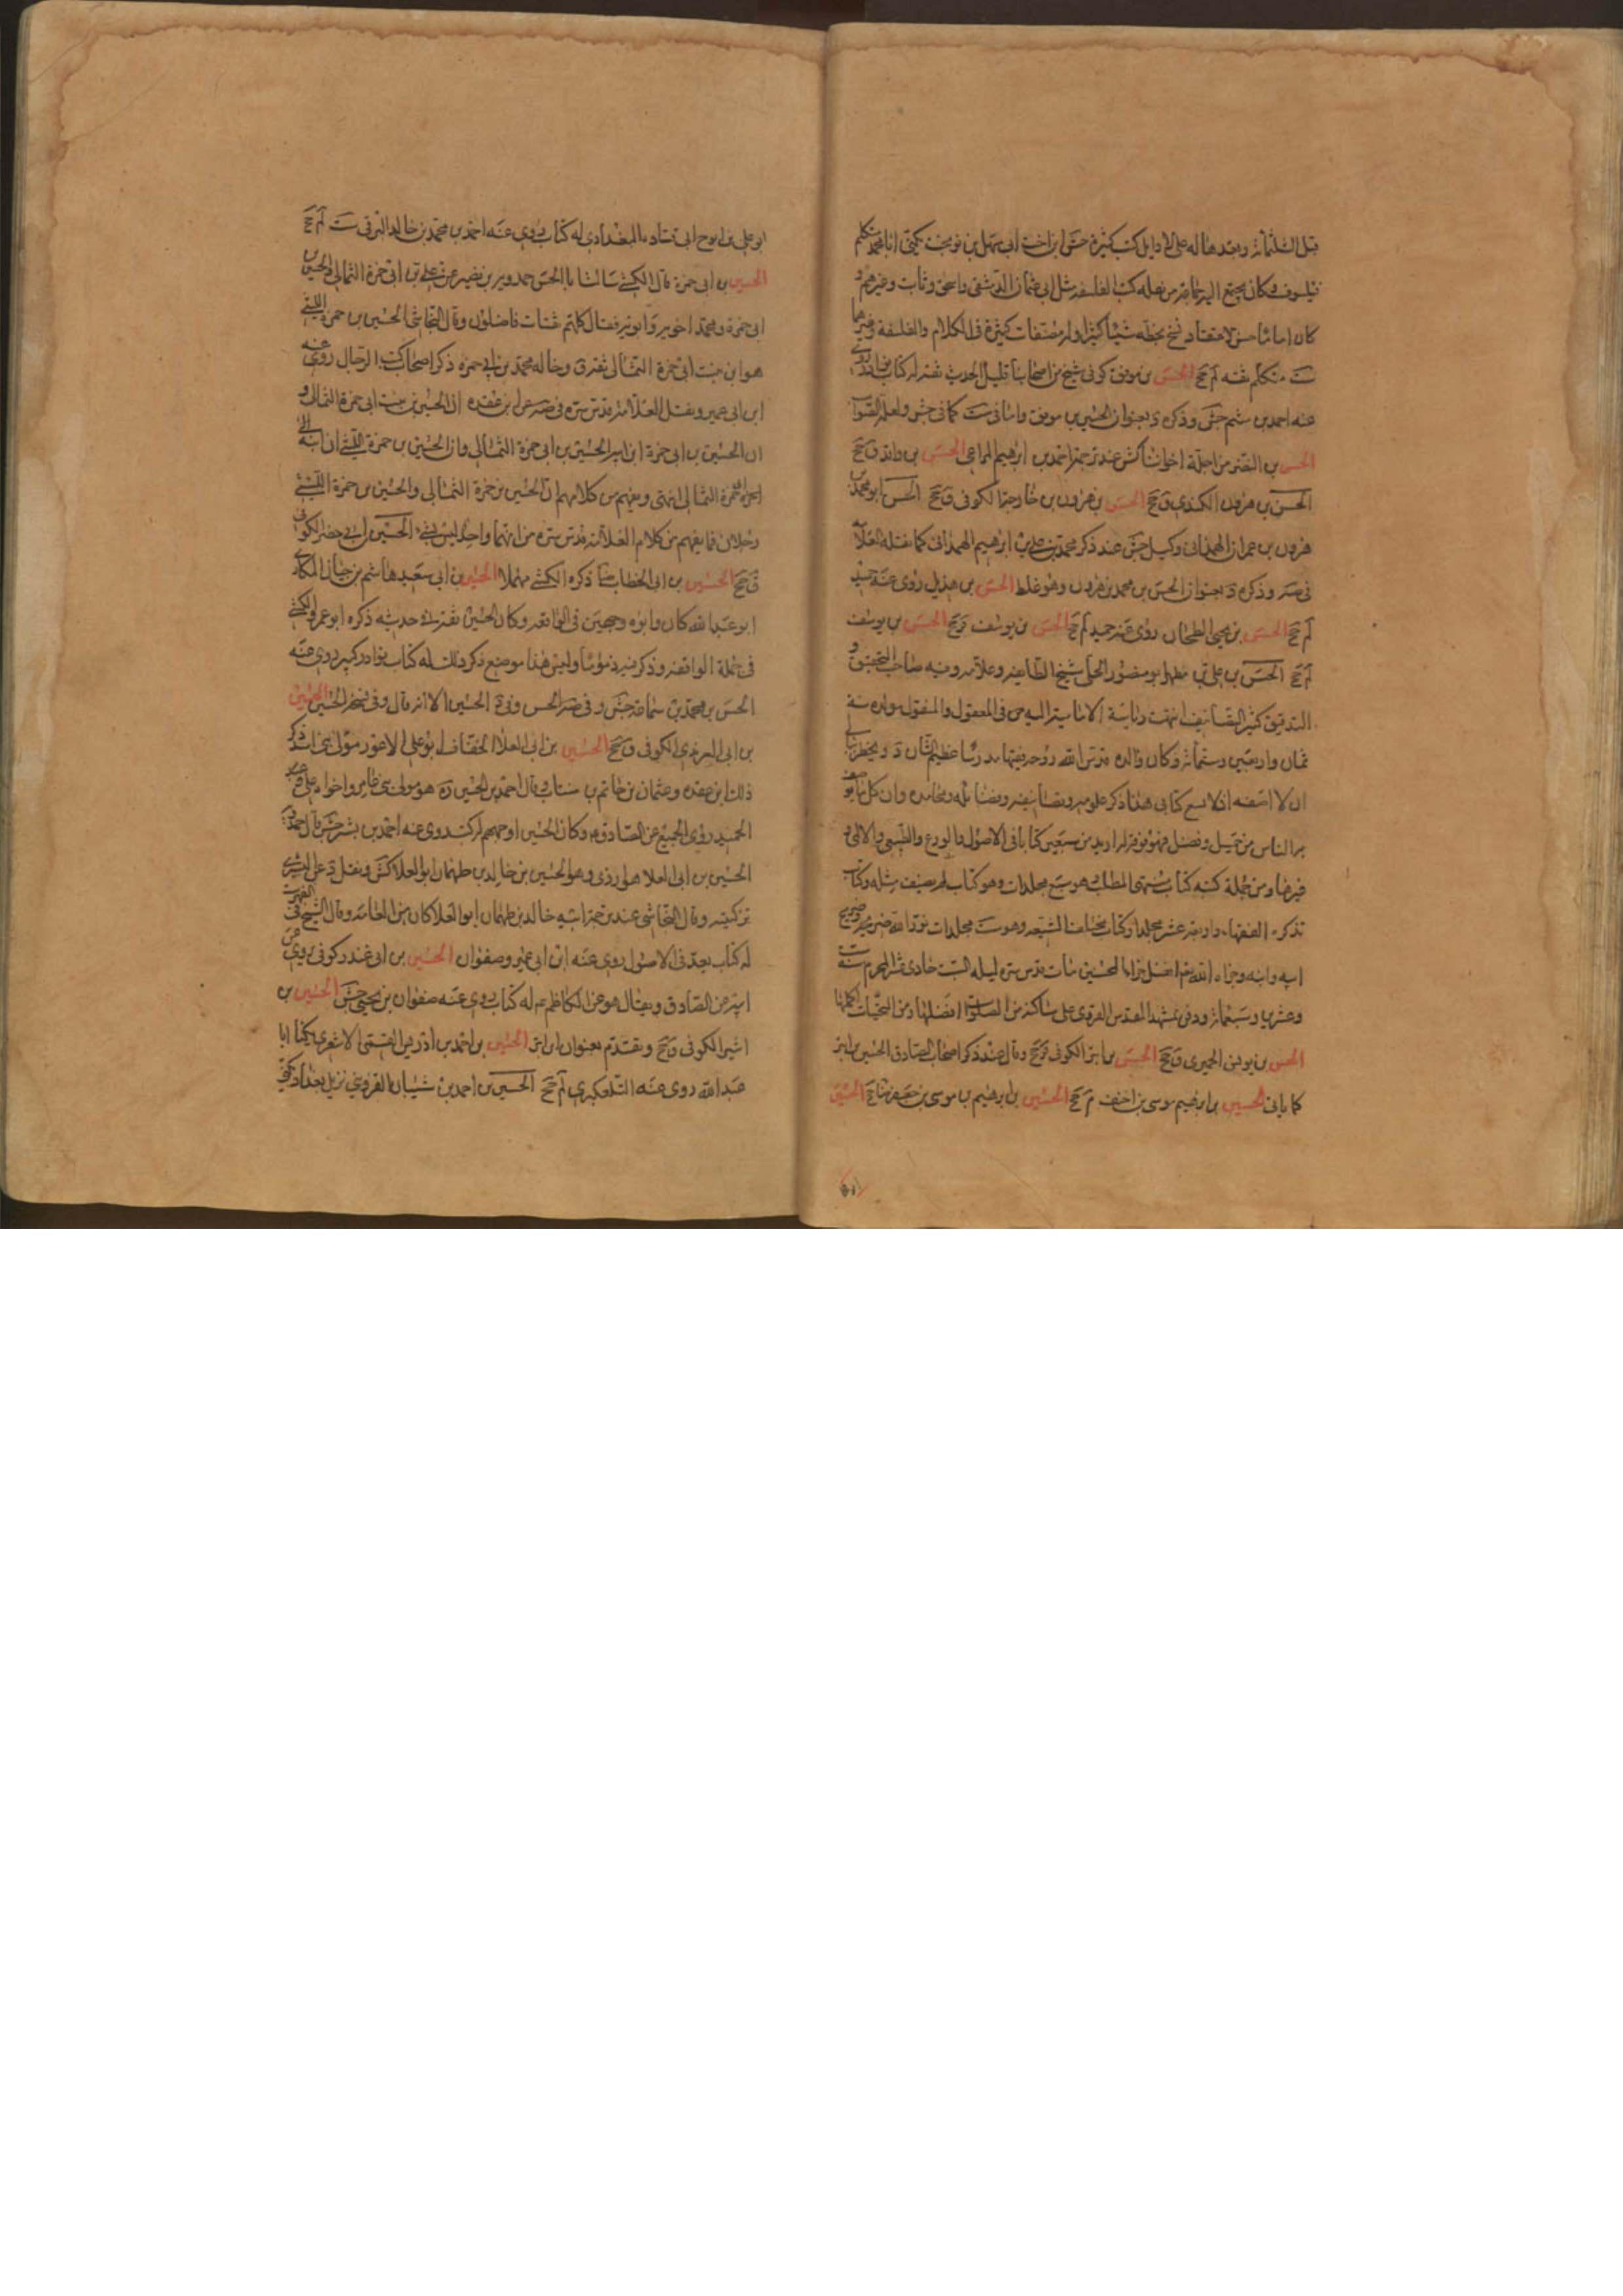 قبل الثلثمائة وبعدها له على الاوايل كتب كثيرة جش ابن اخت ابى سهل بن نوبخت يكنى ابا محمد متكلم
فيلسوف وكان يجتمع اليه جماعة من نقله كتب الفلسفة مثل ابى عثمان الدمشقى واسحق وثابت وغيرهم و
كان اماميا حسن الاعتقاد نسخ بخطه شيئا كثيرا وله مصنفات كثيرة فى الكلام والفلسفة وغيرهما
ست متكلم ثقة لم جخ الحسن بن موفق كوفى شيخ من اصحابنا قليل الحديث ثقة له كتاب نوادر روى
عنه احمد بن ميثم جش وذكره د بعنوان الحسين بن موفق واما فى ست كما فى جش ولعله الصواب
الحسن بن النضر من اجلة اخواننا كش عند ترجمة احمد بن ابرهيم المراغى الحسن بن واقد ق جخ
الحسن بن هرون الكندى ق جخ الحسن بن هرون بن خارجة الكوفى ق جخ الحسن ابو محمد بن
هرون بن عمران الهمدانى وكيل جش عند ذكر محمد بن على بن ابرهيم الهمدانى كما نقله العلامة
فى صه وذكره د بعنوان الحسن بن محمد بن هرون وهو غلط الحسن بن هذيل روى عنه حميد
لم جخ الحسن بن يحيى الطحان روى عنه حميد لم جخ الحسن بن يوسف ر جخ الحسن بن يوسف
لم جخ الحسن بن يوسف بن على بن مطهر ابو منصور الحلى شيخ الطايفة وعلامة وقته صاحب التحقيق و
التدقيق كثير التصانيف انتهت رياسة الامامية اليه فى المعقول والمنقول مولده سنة
ثمان واربعين وستمائة وكان والده قدس الله روحه فقيها مدرسا عظيم الشان د ويخطر ببالى
ان لا اصفه اذ لا يسع كتابى هذا ذكر علومه وتصانيفه وفضائله ومحامده وان كل ما يوصف
به الناس من جميل وفضل فهو فوقه له ازيد من سبعين كتابا فى الاصول والفروع والطبيعى والالهى و
غيرها ومن جملة كتبه كتاب منتهى المطلب هو سبع مجلدات وهو كتاب لم يصنف مثله وكتاب
تذكرة الفقهاء واربعة عشر مجلدا وكتاب مختلف الشيعة وهو ست مجلدات نور الله ضريحه وضريح
ابيه وابنه وجزاه الله عنا افضل جزاء المحسنين مات قدس سره ليلة السبت حادى عشر المحرم سنة ست
وعشرين وسبعمائة ودفن بمشهد المقدس الغروى على ساكنه من الصلوات افضلها ومن التحيات اكملها
الحسن بن يونس الحميرى ق جخ الحسين بن ابتر الكوفى قر جخ وقال عند ذكر اصحاب الصادق الحسين بن ابتر
كما ياتى الحسين بن ابرهيم موسى بن احنف م جخ الحسين بن ابرهيم بن موسى بن جعفر ضا جخ الحسين
ابو على بن ابوح ابى قتادة البغدادى له كتاب روى عنه احمد بن محمد بن خالد البرقى ست لم جخ
الحسين بن ابى حمزة قال الكشى سالت ابا الحسن حمدويه بن نصير عن على بن ابى حمزة الثمالى والحسين بن
ابى حمزة ومحمد اخويه وابويه فقال كلهم ثقات فاضلون وقال النجاشى الحسين بن حمزة الليثى
هو ابن بنت ابى حمزة الثمالى ثقة ق وخاله محمد بن ابى حمزه ذكر اصحاب كتب الرجال روى عنه
ابن ابى عمير ونقل العلامة قدس سره فى صه عن ابن عقده ان الحسين بن بنت ابى حمزة الثمالى و
ان الحسين بن ابى حمزة ابن ابنة الحسين بن ابى حمزة الثمالى وان الحسين بن حمزة الليثى ابن ابنة
ابى حمزة الثمالى انتهى ويفهم من كلامهم ان الحسين بن حمزة الثمالى والحسين بن حمزة الليثى
رجلان فما يفهم من كلام العلامة قدس سره من انهما واحد ليس بشىء الحسين بن ابى حضر الكوفى
ق جخ الحسين بن ابى الخطاب ذكره الكشى مهملا الحسين بن ابى سعيد هاشم بن حيان المكارى
ابو عبد الله كان وابوه وجهين فى الواقفة وكان الحسين ثقة فى حديثه ذكره ابو عمرو الكشى
فى جملة الواقفة وذكر فيه ذموما وليس هذا موضع ذكر ذلك له كتاب نوادر كبير روى عنه
الحسن بن محمد بن سماعة جش وفى صه الحسن وفى د الحسين الا انه قال وفى نسخة الحسن الحسين
بن ابى العرندس الكوفى ق جخ الحسين بن ابى العلا الخفاف ابو على الاعور مولى بنى اسد ذكر
ذلك ابن عقده وعثمان بن حاتم بن منتاب وقال احمد بن الحسين ره هو مولى بنى عامر واخواه على وعبد
الحميد روى الجميع عن الصادق ع وكان الحسين اوجههم له كتب روى عنه احمد بن بشر جش قال حمدويه
الحسين بن ابى العلا هو ازدى وهو الحسين بن خالد بن طهمان ابو العلا كش ونقل د عن السيد
تزكيته وقال النجاشى عند ترجمة ابيه خالد بن طهمان ابو العلا كان من العامة وقال الشيخ فى الفهرست
له كتاب يعد فى الاصول روى عنه ابن ابى عمير وصفوان الحسين بن ابى غندر كوفى يروى عن
ابيه عن الصادق ويقال هو عن الكاظم ع له كتاب روى عنه صفوان بن يحيى جش الحسين بن
اثير الكوفى ق جخ وتقدم بعنوان ابن ابتر الحسين بن احمد بن ادريس القمى الاشعرى يكنى ابا
عبد الله روى عنه التلعكبرى لم جخ الحسين بن احمد بن شيبان القزوينى نزيل بغداد يكنى